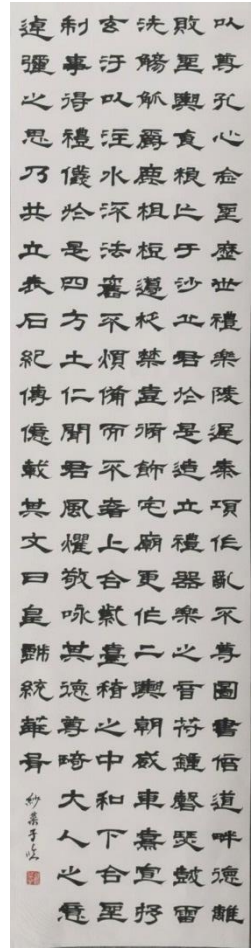 以尊孔心念聖歷世禮樂陵遲秦項作亂不尊圖書倍道畔德離
敗聖輿食糧亡于沙丘君於是造立禮器樂之音符鍾磬瑟鼓雷
洗觴觚爵鹿柤梪籩柉禁壺脩飾宅廟更作二輿朝威車熹宣抒
玄汙以注水流法舊不煩備而不奢上合紫臺稽之中和下合聖
制事得禮儀於是四方士仁聞君風燿敬咏其德尊琦大人之意
逴彌之思乃共立表石紀傳億載其文曰皇戲統華胥